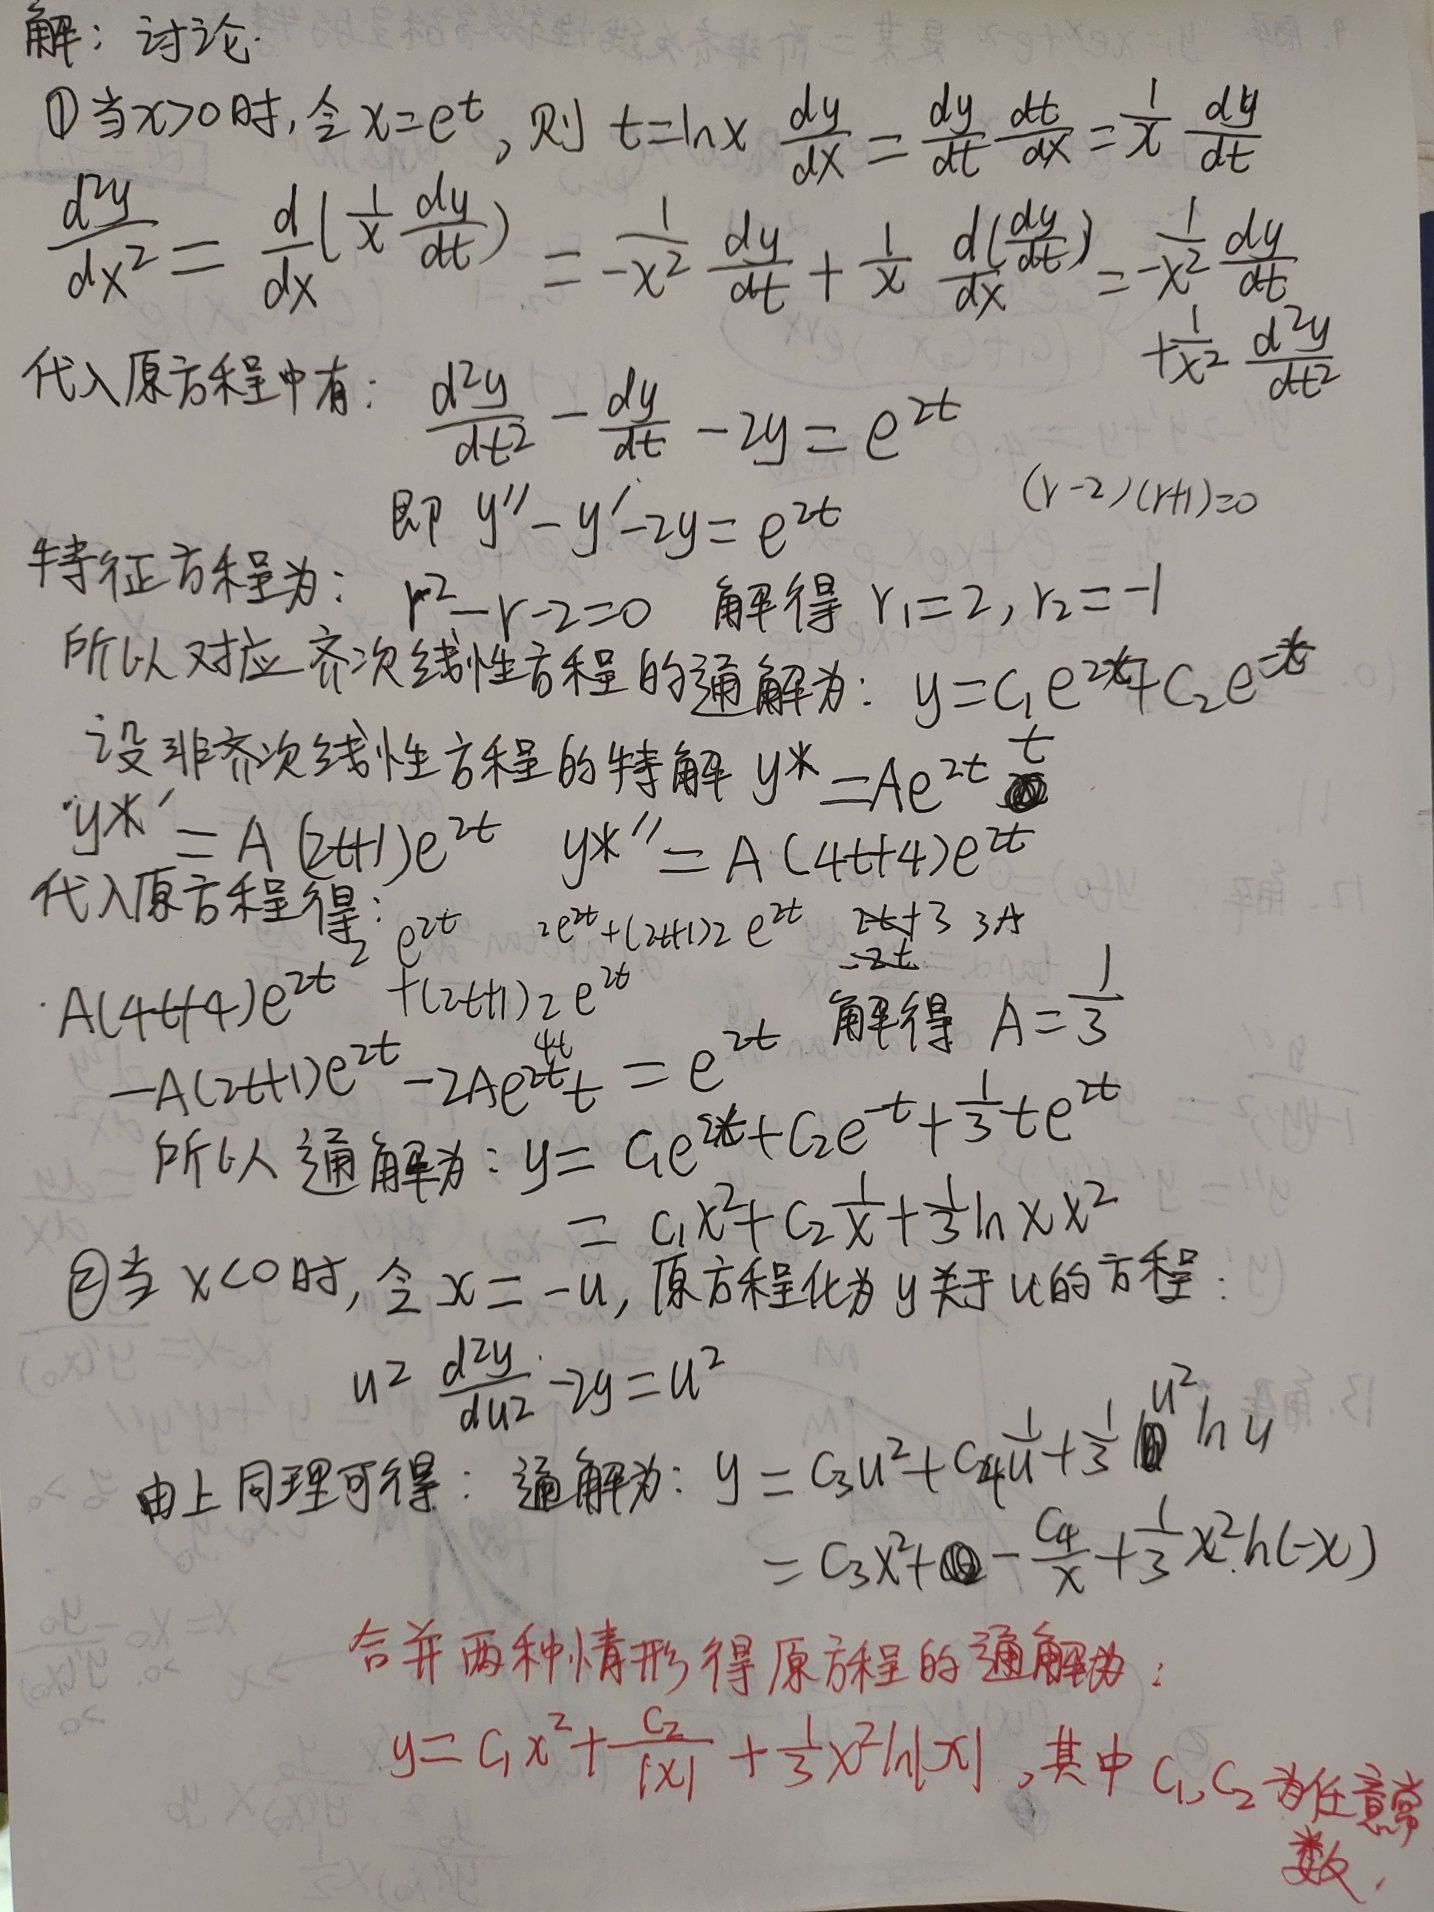 解：讨论.
①当x>0时,令x=e^t,则 t=lnx dy/dx = dy/dt dt/dx = 1/x dy/dt
d²y/dx² = d/dx(1/x dy/dt) = 1/-x² dy/dt + 1/x d(dy/dt)/dx = 1/-x² dy/dt
+1/x² d²y/dt²
代入原方程中有: d²y/dt² - dy/dt - 2y = e^2t
即 y″-y′-2y=e^2t (r-2)(r+1)=0
特征方程为: r²-r-2=0 解得 r₁=2, r₂=-1
所以对应齐次线性方程的通解为: y=C₁e^2t+C₂e^-t
设非齐次线性方程的特解 y* =Ae^2t t
y*′ = A(2t+1)e^2t y*″ = A(4t+4)e^2t
代入原方程得:
2 e^2t 2e^2t+(2t+1)2e^2t 2t+3 3A
+(2t+1)2e^2t -2t
A(4t+4)e^2t 解得 A=1/3
-A(2t+1)e^2t-2Ae^2t t = e^2t
4t
所以通解为: y= C₁e^2t+C₂e^-t+1/3te^2t
= C₁x²+C₂1/x+1/3lnx x²
②当x<0时,令x=-u,原方程化为y关于u的方程:
u² d²y/du² -2y=u²
由上同理可得: 通解为: y = C₃u²+C₄1/u+1/3 u² ln u
= C₃x²+ - C₄/x+1/3x²ln(-x)
合并两种情形得原方程的通解为:
y=C₁x²+C₂/|x|+1/3x²ln|x|,其中C₁,C₂为任意常
数.